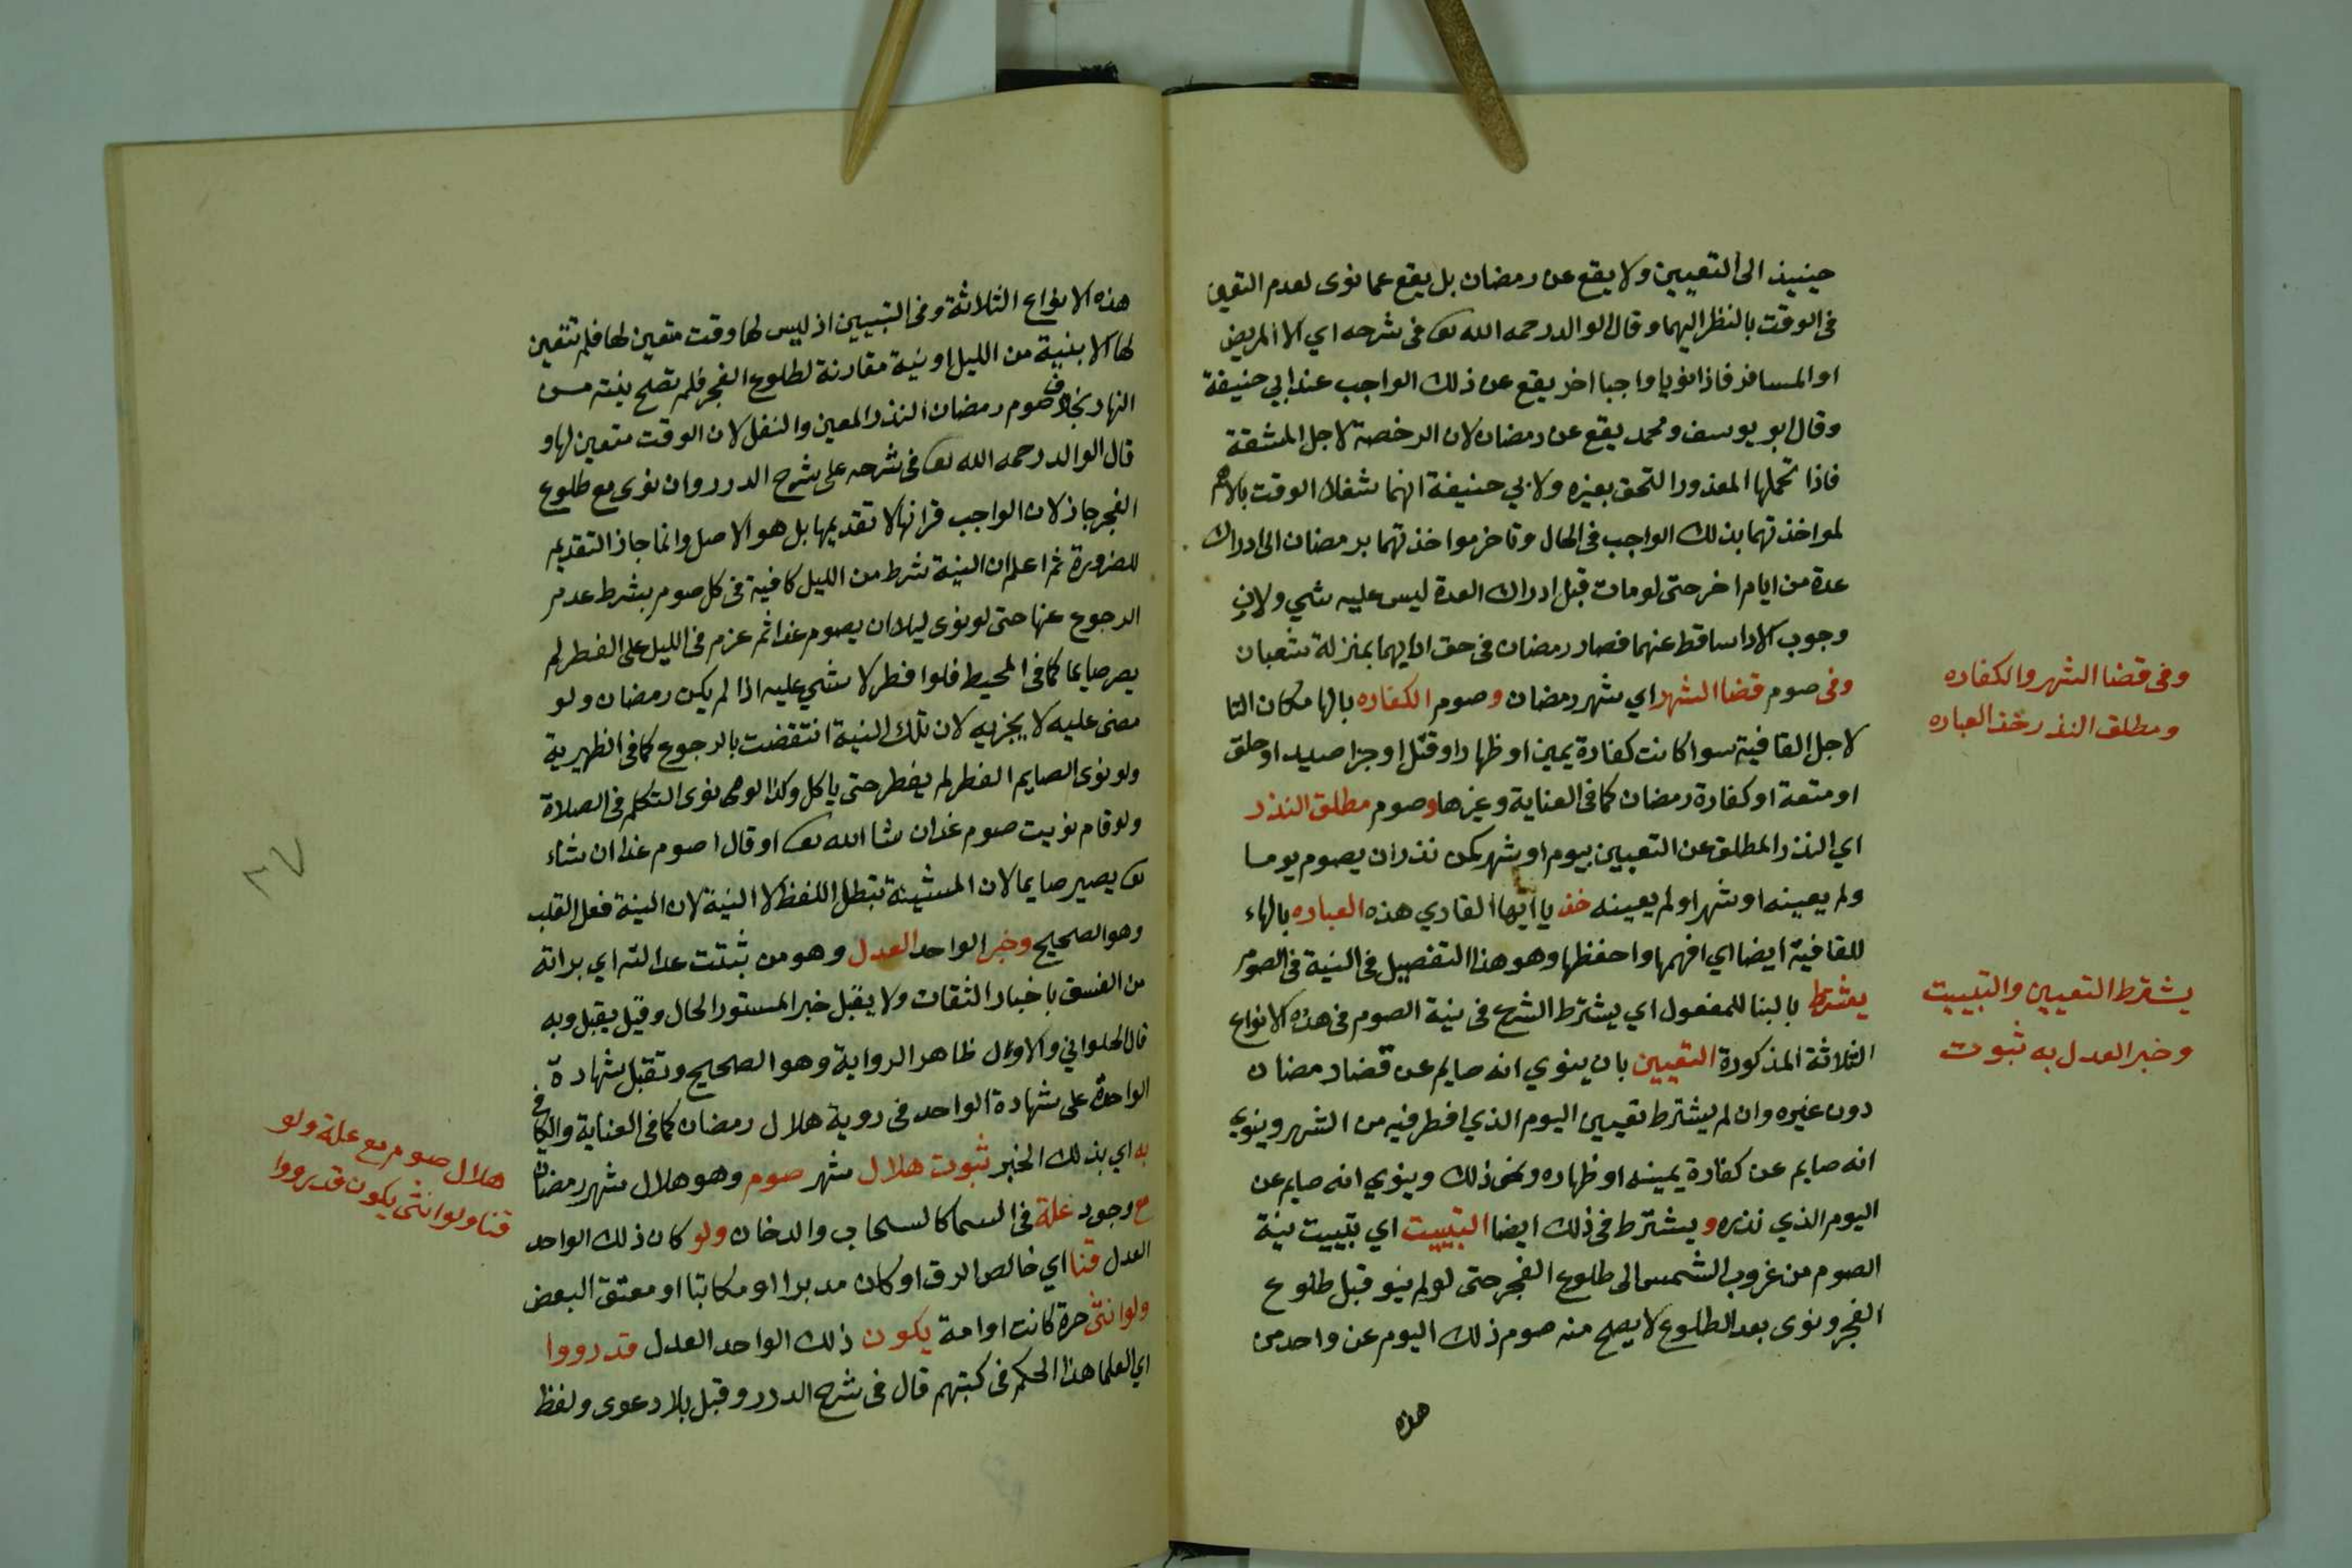 حينيذ الى التعيين ولا يقع عن رمضان بل يقع عما نوى لعدم التعين
في الوقت بالنظر اليهما وقال الوالد رحمه الله تع في شرحه اي الا المريض
او المسافر فاذا نويا واجبا اخر يقع عن ذلك الواجب عند ابي حنيفة
وقال ابو يوسف ومحمد يقع عن رمضان لان الرخصة لاجل المشقة
فاذا تحملها المعذور التحق بغيره ولابي حنيفة انهما شغلا الوقت بالاهم
لمواخذتهما بذلك الواجب في الحال وتاخر مواخذتهما برمضان الى ادراك
عدة من ايام اخر حتى لو مات قبل ادراك العدة ليس عليه شي ولان
وجوب الادا ساقط عنهما فصار رمضان في حق ادايهما بمنزلة شعبان
وفي صوم قضا الشهر اي شهر رمضان وصوم الكفاره بالها مكان التا
لاجل القافية سوا كانت كفارة يمين او ظهار او قتل او جزا صيد او حلق
او متعة او كفارة رمضان كما في العناية وغيرها وصوم مطلق النذر
اي النذر المطلق عن التعيين بيوم او شهر كمن نذر ان يصوم يوما
ولم يعينه او شهرا ولم يعينه خذ يا ايها القاري هذه العباره بالهاء
للقافية ايضا اي افهمها واحفظها وهو هذا التفصيل في النية في الصوم
يشترط بالبنا للمفعول اي يشترط الشرع في نية الصوم في هذه الانواع
الثلاثة المذكورة التعيين بان ينوي انه صايم عن قضا رمضان
دون غيره وان لم يشترط تعيين اليوم الذي افطر فيه من الشهر وينوي
انه صايم عن كفارة يمينه او ظهاره ونحو ذلك وينوي انه صايم عن
اليوم الذي نذره ويشترط في ذلك ايضا التبييت اي تبييت نية
الصوم من غروب الشمس الى طلوع الفجر حتى لو لم ينو قبل طلوع
الفجر ونوى بعد الطلوع لا يصح منه صوم ذلك اليوم عن واحد من
هذه
وفي قضا الشهر والكفاره
ومطلق النذر خذ العباره
يشترط التعيين والتبييت
وخبر العدل به ثبوت
هذه الانواع الثلاثة وفي التبيين اذ ليس لها وقت متعين لها فلم تتعين
لها الا بنية من الليل او نية مقارنة لطلوع الفجر فلم تصح بنية من
النهار بخلاف صوم رمضان النذر المعين والنفل لان الوقت متعين لها و
قال الوالد رحمه الله تع في شرحه على شرح الدرر وان نوى مع طلوع
الفجر جاز لان الواجب قرانها لا تقديمها بل هو الاصل وانما جاز التقديم
للضرورة ثم اعلم ان النية شرط من الليل كافية في كل صوم بشرط عدم
الرجوع عنها حتى لو نوى ليلا ان يصوم غدا ثم عزم في الليل على الفطر لم
يصر صايما كما في المحيط فلو افطر لا شي عليه اذا لم يكن رمضان ولو
مضى عليه لا يجزيه لان تلك النية انتقضت بالرجوع كما في الظهيرية
ولو نوى الصايم الفطر لم يفطر حتى ياكل وكذا لو نوى التكلم في الصلاة
ولو قام نويت صوم غد ان شا الله تع او قال اصوم غدا ان شاء
تع يصير صايما لان المشيئة تبطل اللفظ لا النية لان النية فعل القلب
وهو الصحيح وخبر الواحد العدل وهو من ثبتت عدالته اي براته
من الفسق باخبار الثقات ولا يقبل خبر المستور الحال وقيل يقبل وبه
قال الحلواني والاول ظاهر الرواية وهو الصحيح وتقبل شهادة
الواحد على شهادة الواحد في روية هلال رمضان كما في العناية والكافي
به اي بذلك الخبر ثبوت هلال شهر صوم وهو هلال شهر رمضان
مع وجود علة في السما كالسحاب والدخان ولو كان ذلك الواحد
العدل قنا اي خالص الرق او كان مدبرا او مكاتبا او معتق البعض
ولو انثى حرة كانت او امة يكون ذلك الواحد العدل قد رووا
اي العلما هذا الحكم في كتبهم قال في شرح الدرر وقبل بلا دعوى ولفظ
هلال صوم مع علة ولو
قنا ولو انثى يكون قد رووا